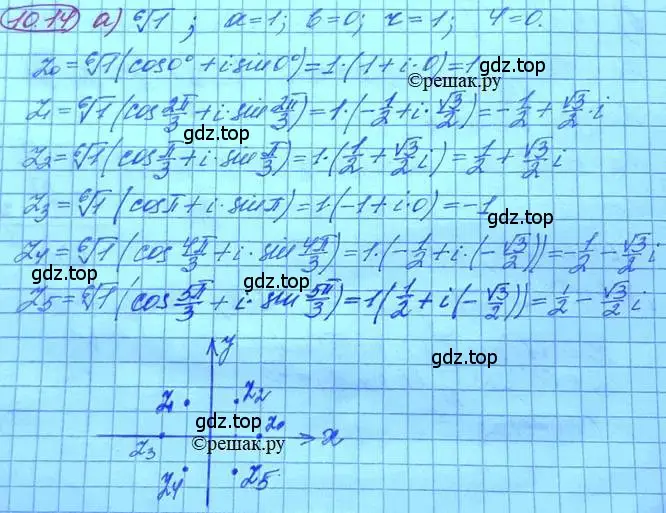 10.14 а) ⁶√1 ; a=1; b=0; r=1; φ=0.
z₀ = ⁶√1 (cos0° + i sin0°) = 1·(1+i·0) = 1
©reшак.ру
z₁ = ⁶√1 (cos 2π/3 + i· sin 2π/3) = 1·(-1/2 + i· √3/2) = -1/2 + √3/2 · i
gdz.top gdz.top
z₂ = ⁶√1 (cos π/3 + i· sin π/3) = 1·(1/2 + √3/2 i) = 1/2 + √3/2 i
z₃ = ⁶√1 (cosπ + i· sinπ) = 1·(-1+i·0) = -1
gdz.top gdz.top
z₄ = ⁶√1 (cos 4π/3 + i· sin 4π/3) = 1·(-1/2 + i·(-√3/2)) = -1/2 - √3/2 i
z₅ = ⁶√1 (cos 5π/3 + i· sin 5π/3) = 1(1/2 + i(-√3/2)) = 1/2 - √3/2 i
y
gdz.top
z₁ z₂
gdz.top z₀
z₃ ©reшак.ру x
z₄ z₅
gdz.top